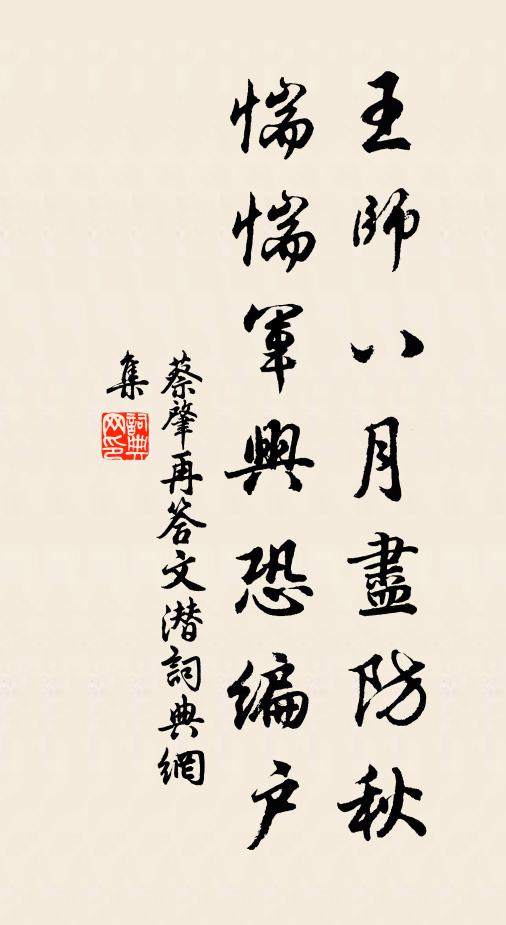 王師八月盡防秋
惴惴軍興恐編户
蔡肇再答文潜詞典網
集
詞典
网印